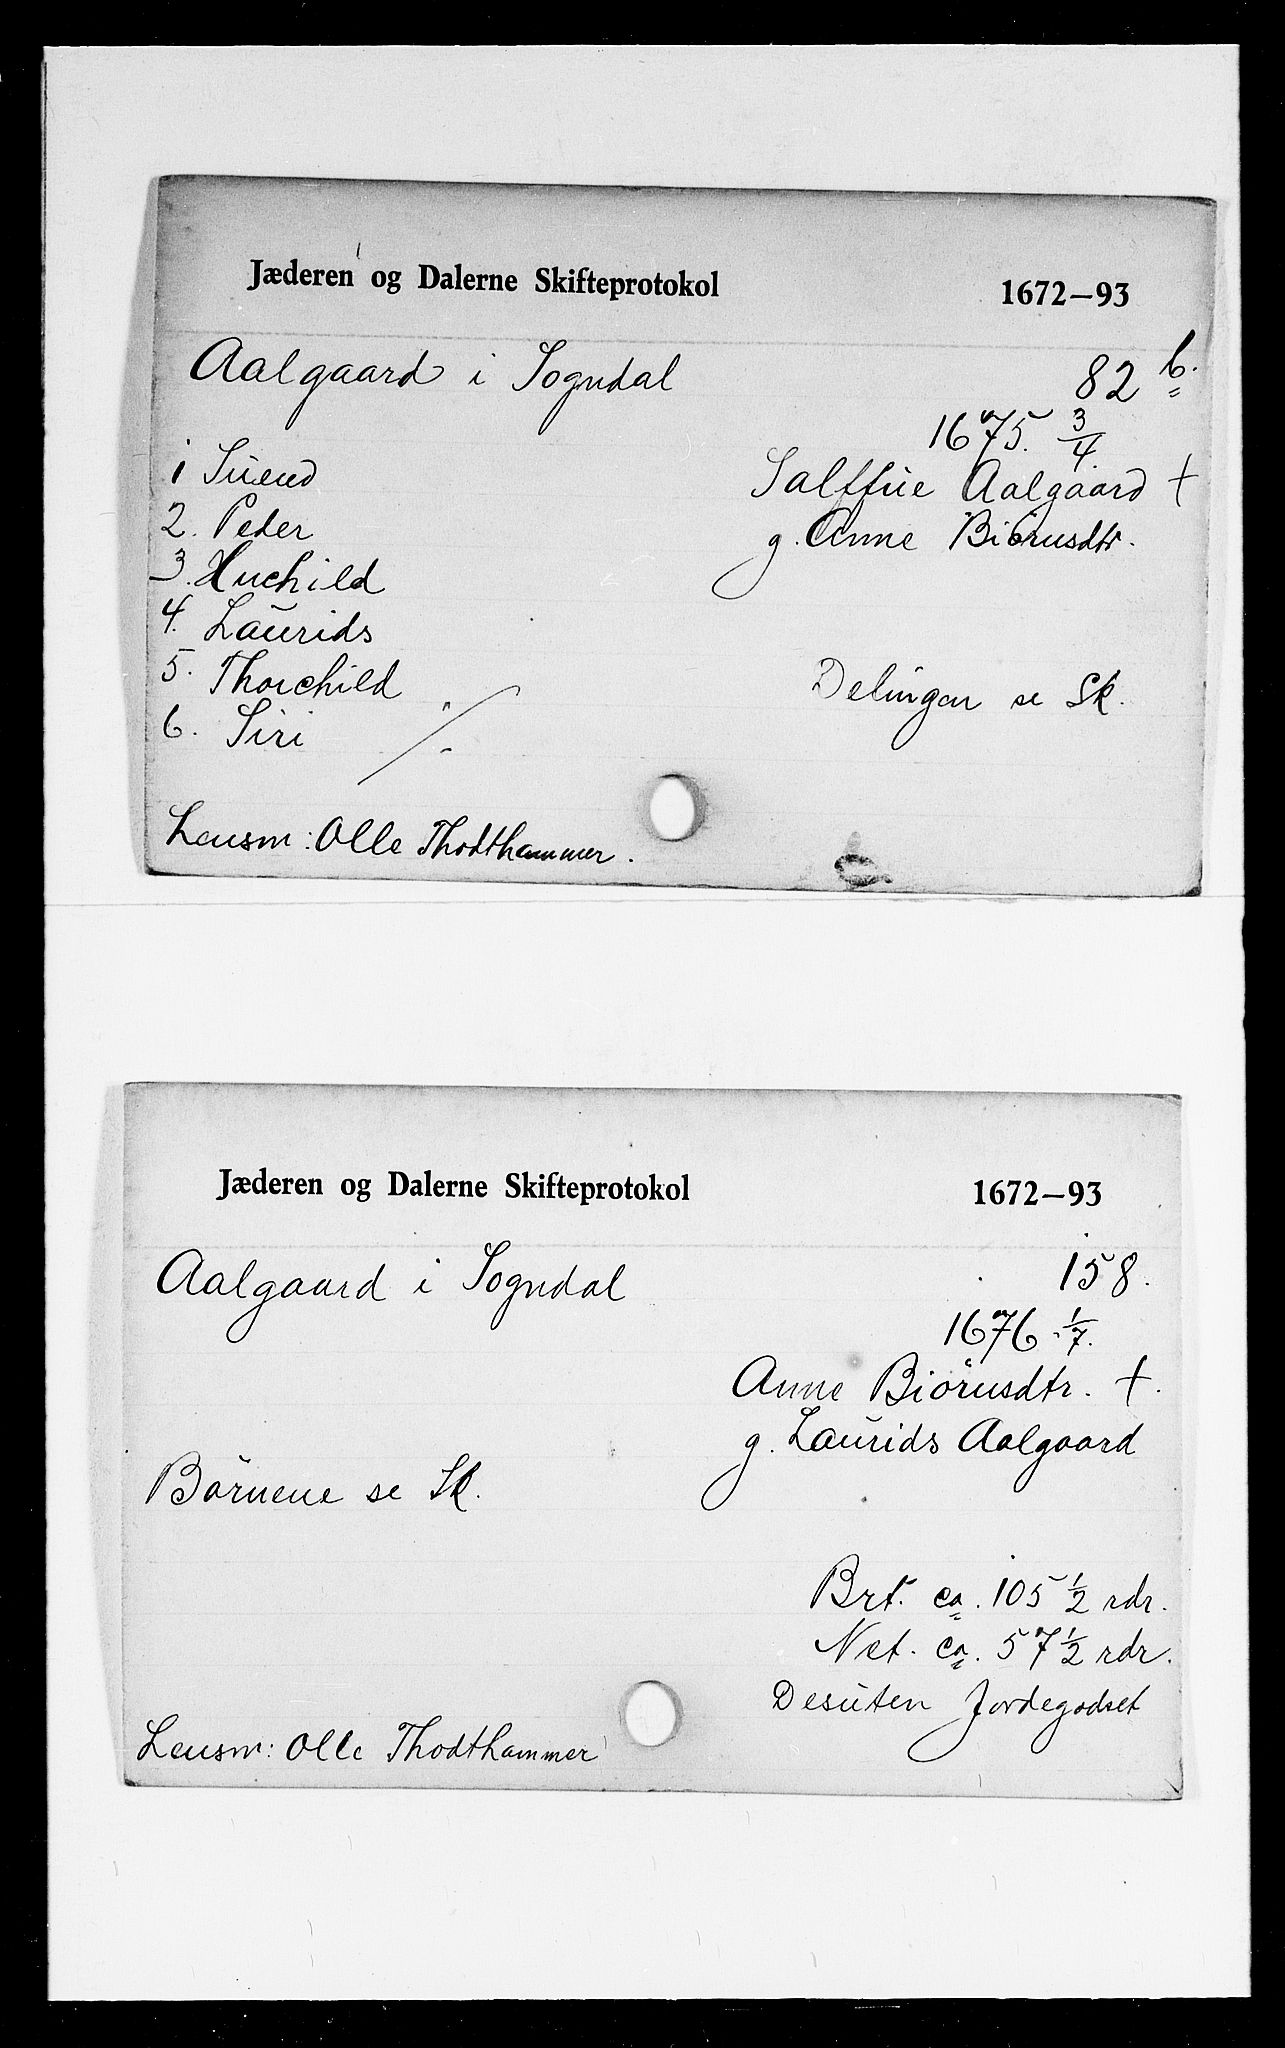 Jæderen og Dalerne Skifteprotokol 1672–93
Aalgaard i Sogndal 82 b.
1675. 3/4.
1 Suend Salffue Aalgaard †
2. Peder g. Anne Biörnsdtr.
3. Huchild
4. Laurids
5. Thorchild Delingen se Sk.
6. Siri
Lensm: Olle Thodthammer.
Jæderen og Dalerne Skifteprotokol 1672–93
Aalgaard i Sogndal 158.
1676. 1/7.
Anne Biörnsdtr. †.
g. Laurids Aalgaard
Börnene se Sk.
Brt. ca. 105 1/2 rdr.
Net. ca. 57 1/2 rdr.
Desuten Jordegodset
Lensm: Olle Thodthammer